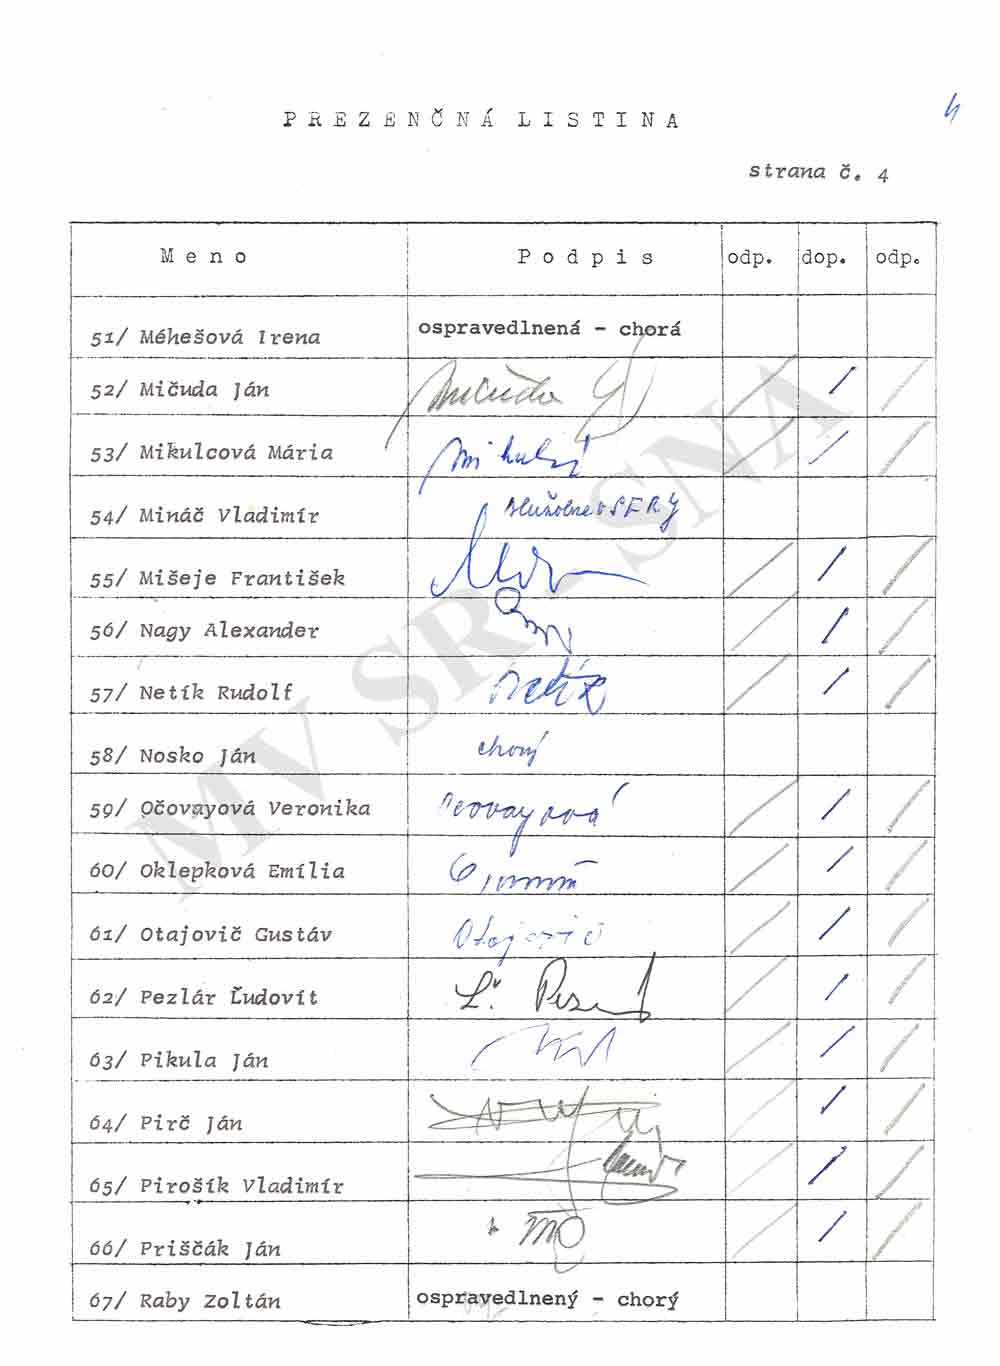 4
PREZENČNÁ LISTINA
strana č. 4
Meno Podpis odp. dop. odp.
51/ Méhešová Irena ospravedlnená - chorá
52/ Mičuda Ján Mičuda
53/ Mikulcová Mária
54/ Mináč Vladimír
55/ Mišeje František
56/ Nagy Alexander
57/ Netík Rudolf Netík
58/ Nosko Ján chorý
59/ Očovayová Veronika Očovayová
60/ Oklepková Emília
61/ Otajovič Gustáv Otajovič
62/ Pezlár Ľudovít Ľ. Pez
63/ Pikula Ján
64/ Pirč Ján
65/ Pirošík Vladimír
66/ Priščák Ján
67/ Raby Zoltán ospravedlnený - chorý
MV SR - SNA